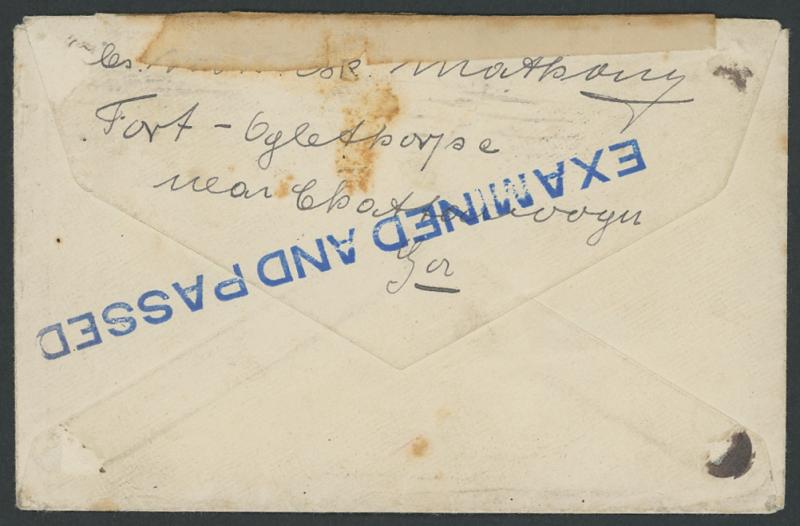 Mathony
Fort - Oglethorpe
near Chattanoogu
Gor
EXAMINED AND PASSED